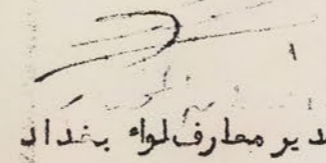 دير معارف لواء بغداد